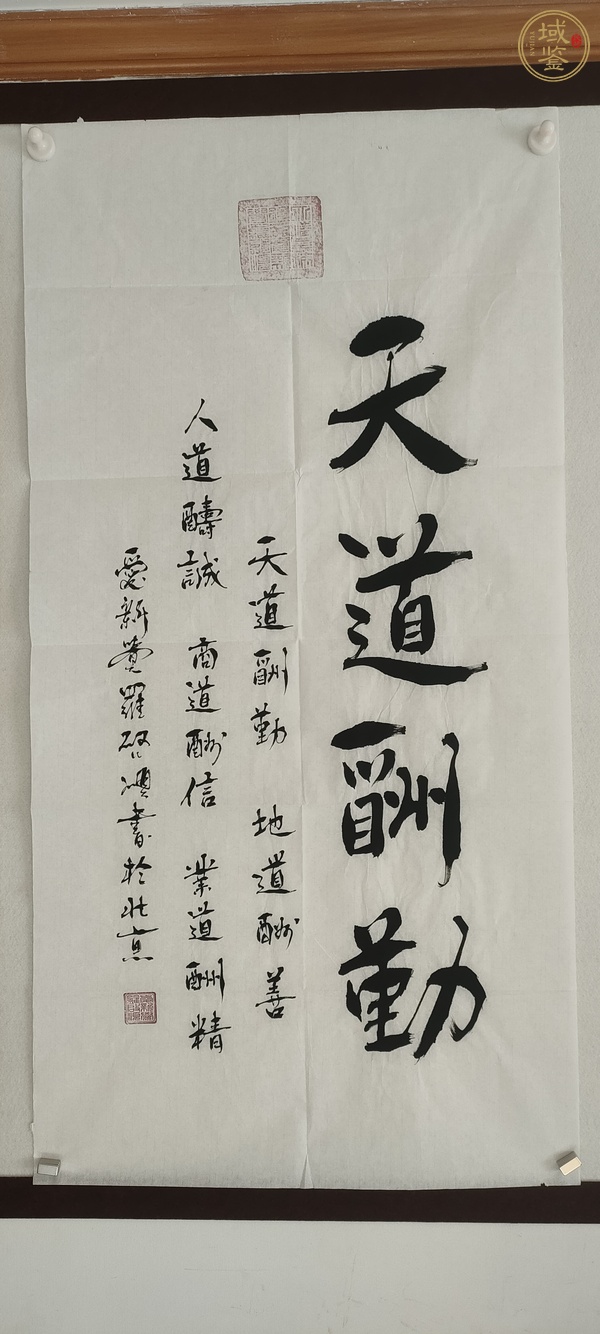 天道酬勤
天道酬勤 地道酬善
人道醻誠 商道酬信 業道酬精
愛新覺羅啓順書於北京
域鉴